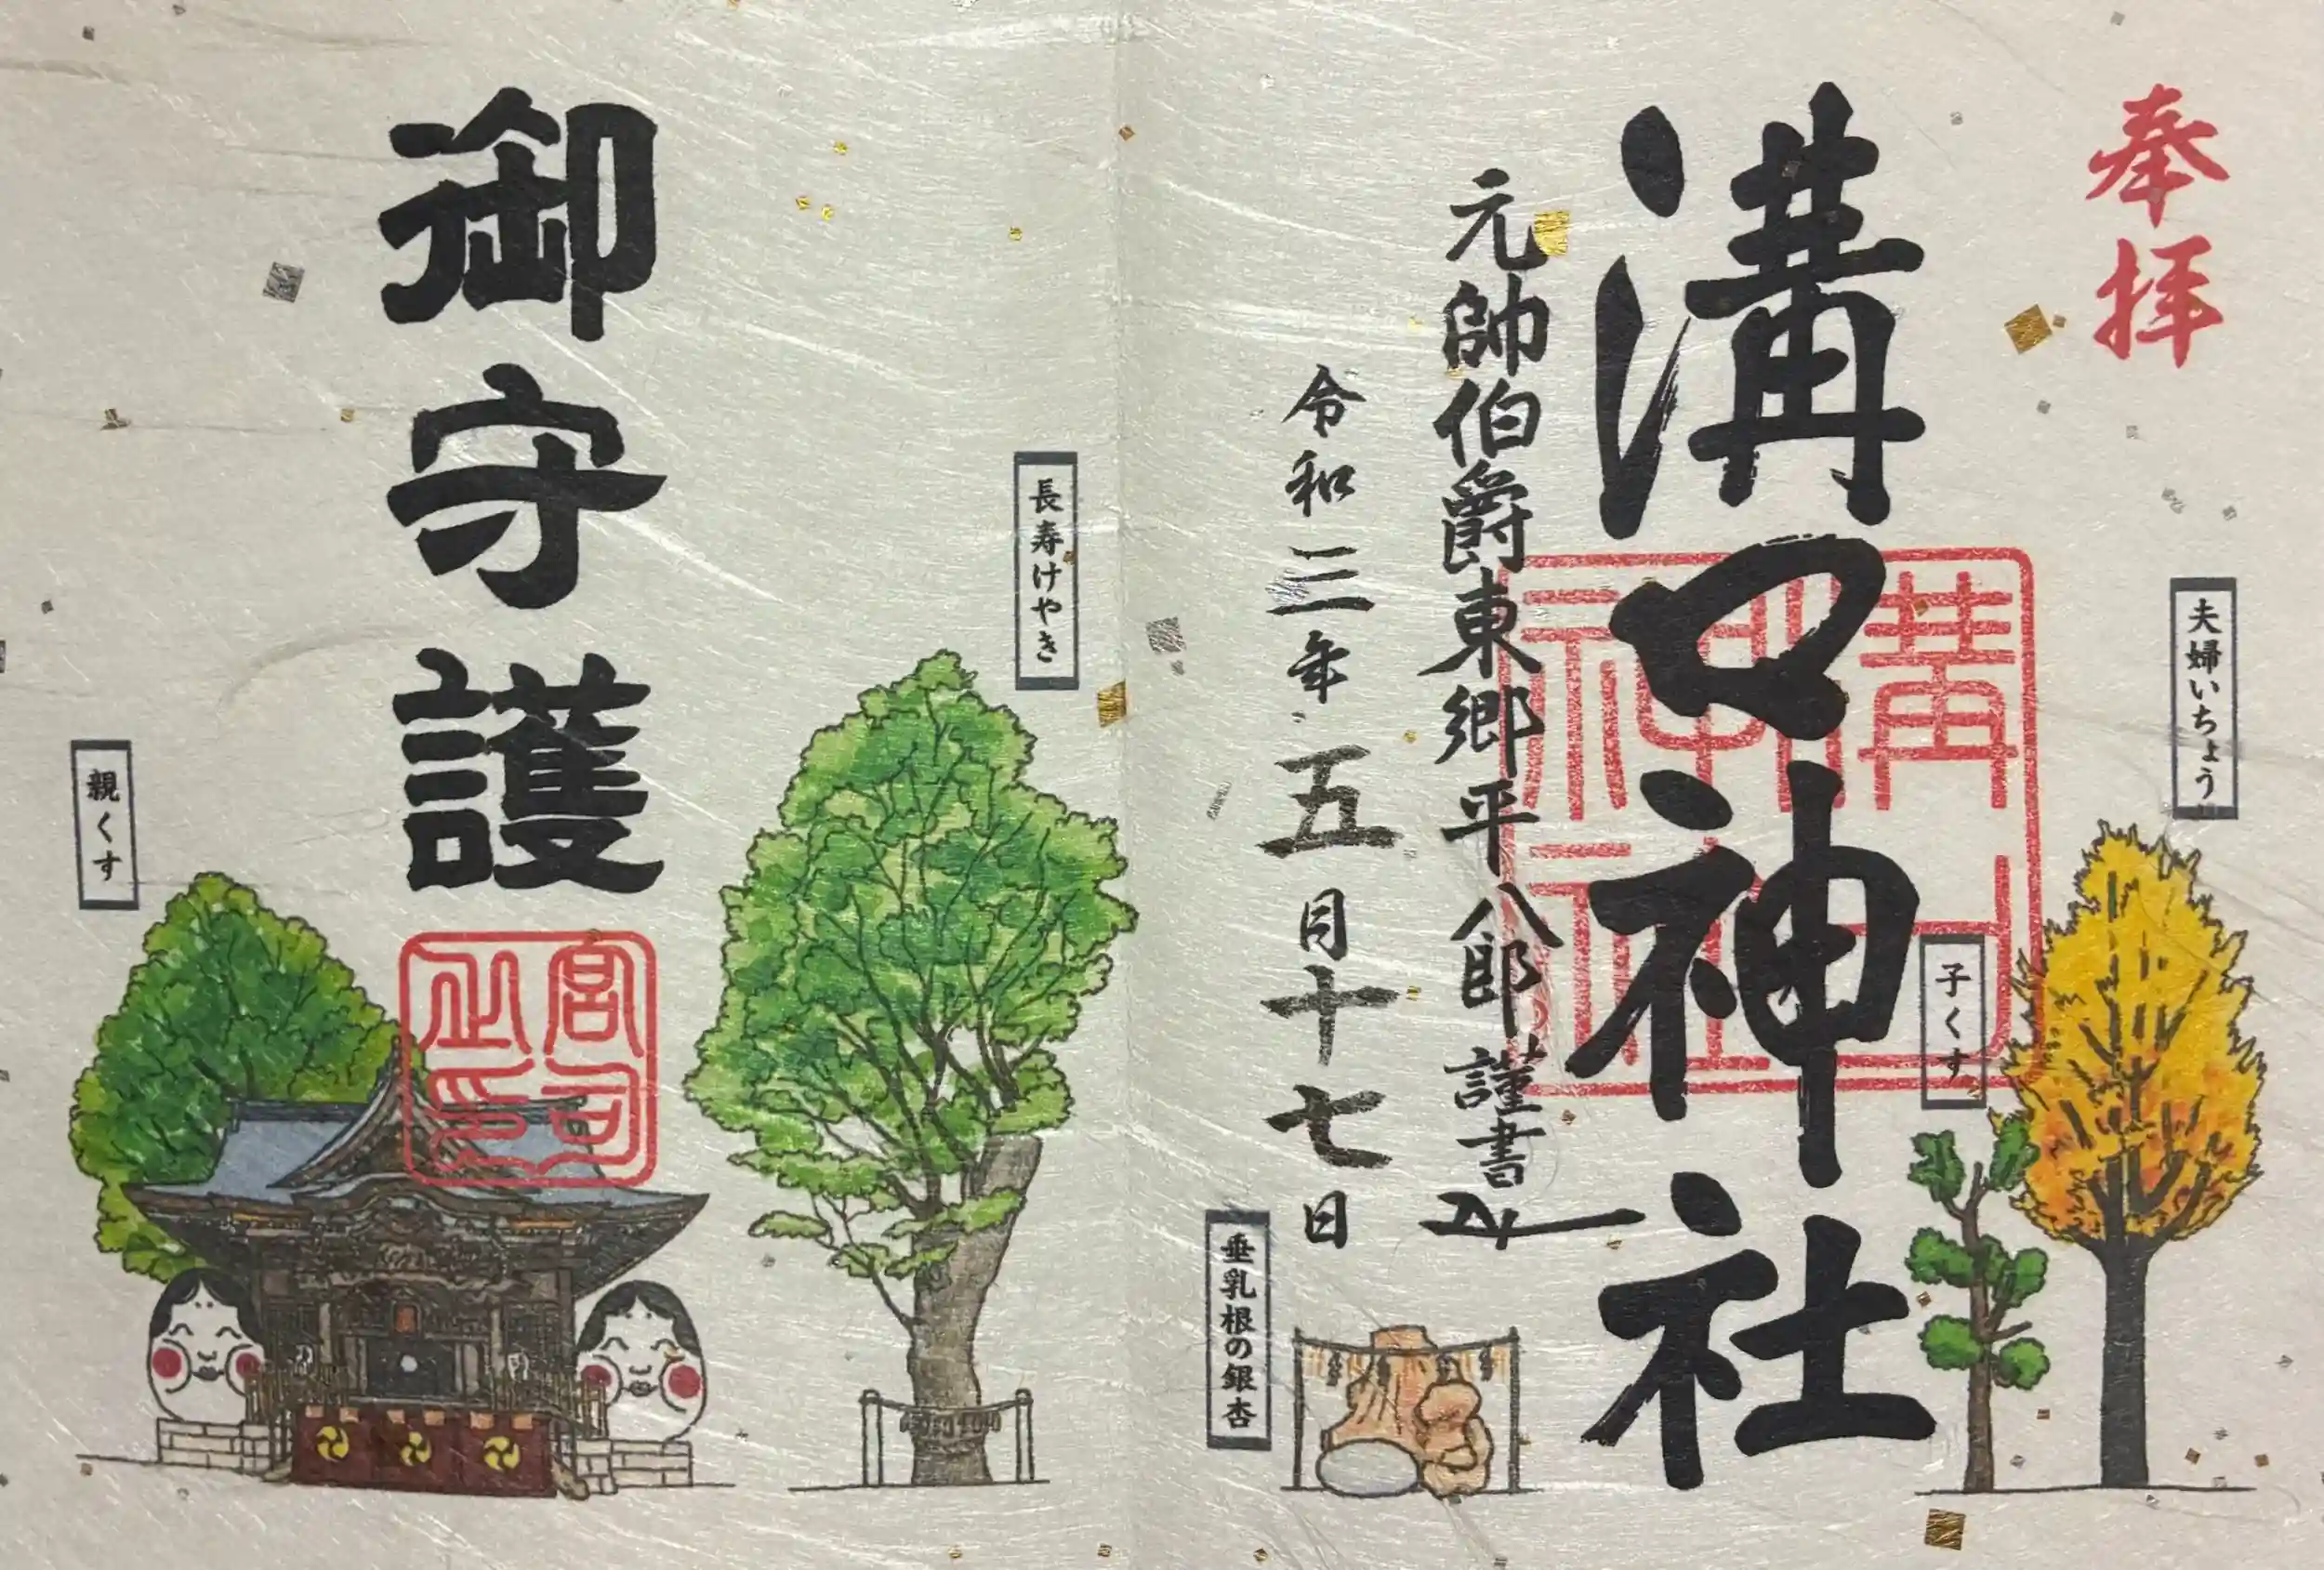 奉拝
夫婦いちょう
子くす
溝口神社
溝口神社
元帥伯爵東郷平八郎謹書
令和三年五月十七日
垂乳根の銀杏
長寿けやき
御守護
宮司之印
親くす